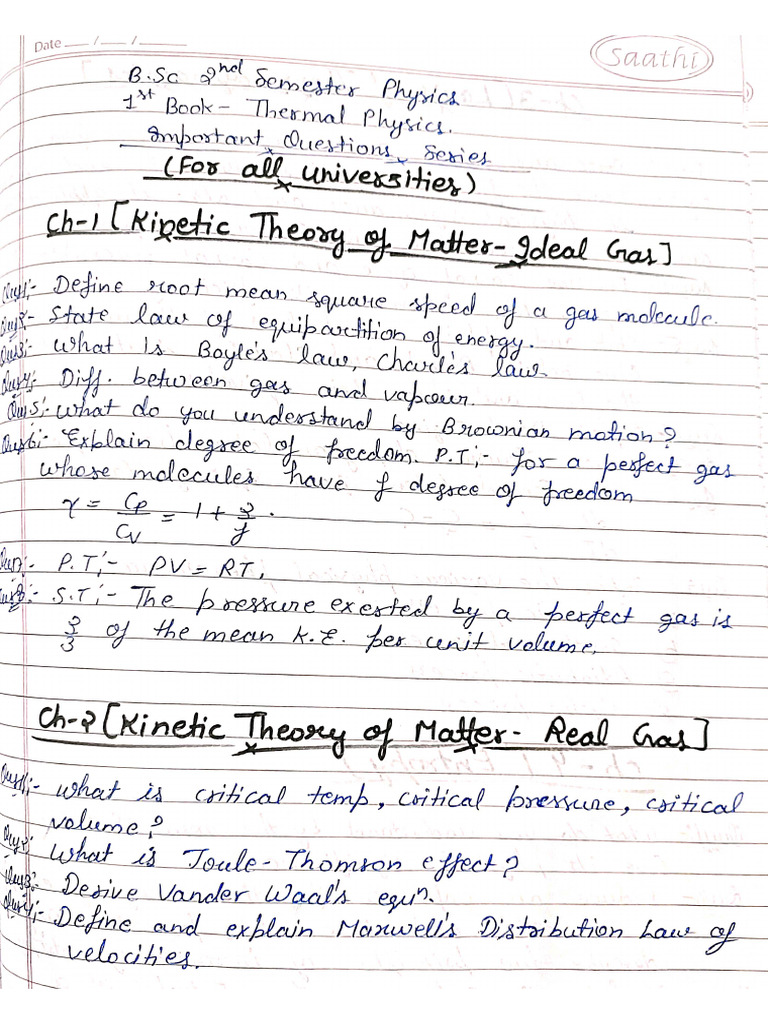 Date __/__/____
Saathi
B.Sc 2nd Semester Physics
1st Book - Thermal Physics.
Important Questions Series
(For all universities)
Ch-1 [Kinetic Theory of Matter - Ideal Gas]
Ques1:- Define root mean square speed of a gas molecule.
Ques2:- State law of equipartition of energy.
Ques3:- What is Boyle's law, Charle's law.
Ques4:- Diff. between gas and vapour.
Ques5:- What do you understand by Brownian motion?
Ques6:- Explain degree of freedom. P.T:- for a perfect gas
whose molecules have f degree of freedom
γ = Cp/Cv = 1 + 2/f.
Ques7:- P.T:- PV = RT.
Ques8:- S.T:- The pressure exerted by a perfect gas is
2/3 of the mean K.E. per unit volume.
Ch-2 [Kinetic Theory of Matter - Real Gas]
Ques1:- What is critical temp, critical pressure, critical
volume?
Ques2:- What is Joule-Thomson effect?
Ques3:- Derive Vander Waal's equn.
Ques4:- Define and explain Maxwell's Distribution Law of
velocities.